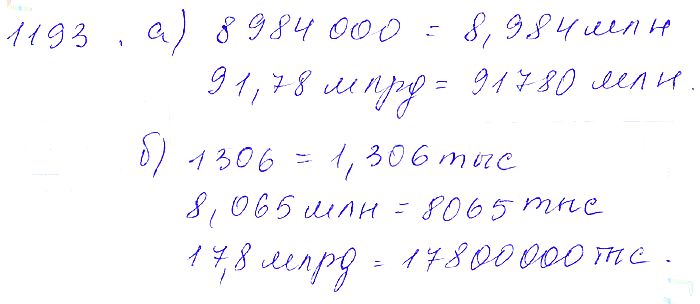 1193. а) 8 984 000 = 8,984 млн
91,78 млрд = 91780 млн.
б) 1306 = 1,306 тыс
8,065 млн = 8065 тыс
17,8 млрд = 17800000 тс.